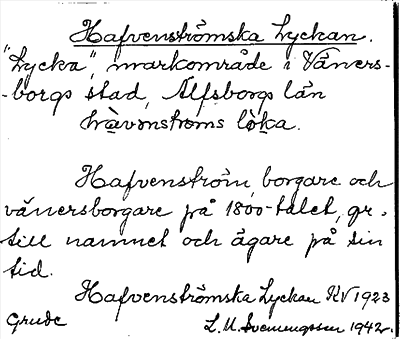 Hafvenströmska Lyckan.
"Lycka", markområde i Väners-
-borgs stad, Älfsborgs län
hàvənstroms lòka.
Hafvenström, borgare och
vänersborgare på 1800-talet, gr.
till namnet och ägare på sin
tid.
Hafvenströmska Lyckan KV 1923
Grude L. M. Svenungsson 1942.